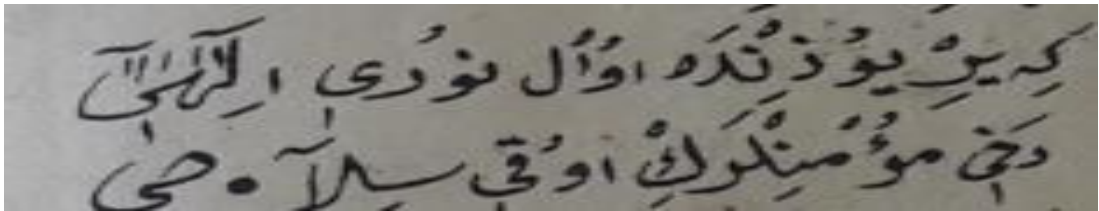 كِه يِرْ يوُزِنْدَه اوُل نوُرى اِلٰهىٖ
دَخى مؤُمِنْلَرِكْ اوُقى سِلآحى